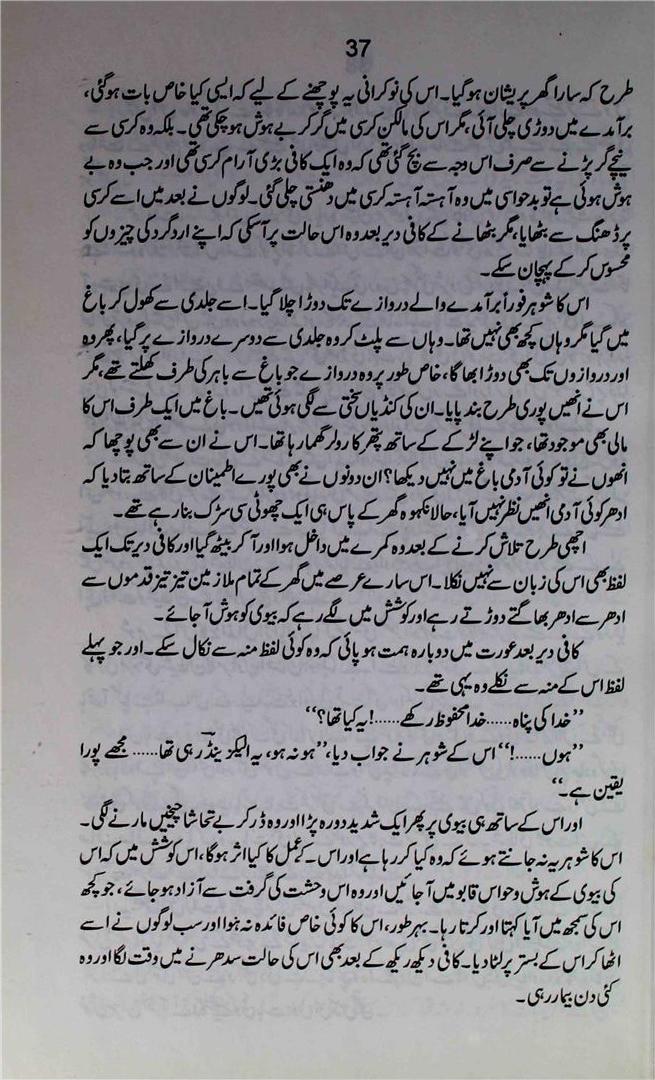 37
طرح کہ سارا گھر پریشان ہو گیا۔ اس کی نوکرانی یہ پوچھنے کے لیے کہ ایسی کیا خاص بات ہو گئی،
برآمدے میں دوڑی چلی آئی، مگر اس کی مالکن کرسی میں گر کر بے ہوش ہو چکی تھی۔ بلکہ وہ کرسی سے
نیچے گر پڑنے سے صرف اس وجہ سے بچ گئی تھی کہ وہ ایک کافی بڑی آرام کرسی تھی اور جب وہ بے
ہوش ہوئی ہے تو بدحواسی میں وہ آہستہ آہستہ کرسی میں دھنستی چلی گئی۔ لوگوں نے بعد میں اسے کرسی
پر ڈھنگ سے بٹھایا، مگر بٹھانے کے کافی دیر بعد وہ اس حالت پر آسکی کہ اپنے ارد گرد کی چیزوں کو
محسوس کر کے پہچان سکے۔
اس کا شوہر فوراً برآمدے والے دروازے تک دوڑا چلا گیا۔ اسے جلدی سے کھول کر باغ
میں گیا مگر وہاں کچھ بھی نہیں تھا۔ وہاں سے پلٹ کر وہ جلدی سے دوسرے دروازے پر گیا، پھر وہ
اور دروازوں تک بھی دوڑا بھاگا، خاص طور پر وہ دروازے جو باغ سے باہر کی طرف کھلتے تھے، مگر
اس نے انھیں پوری طرح بند پایا۔ ان کی کنڈیاں سختی سے لگی ہوئی تھیں۔ باغ میں ایک طرف اس کا
مالی بھی موجود تھا، جو اپنے لڑکے کے ساتھ پتھر کا رولر گھما رہا تھا۔ اس نے ان سے بھی پوچھا کہ
انھوں نے تو کوئی آدمی باغ میں نہیں دیکھا؟ ان دونوں نے بھی پورے اطمینان کے ساتھ بتا دیا کہ
ادھر کوئی آدمی انھیں نظر نہیں آیا، حالانکہ وہ گھر کے پاس ہی ایک چھوٹی سی سڑک بنا رہے تھے۔
اچھی طرح تلاش کرنے کے بعد وہ کمرے میں داخل ہوا اور آ کر بیٹھ گیا اور کافی دیر تک ایک
لفظ بھی اس کی زبان سے نہیں نکلا۔ اس سارے عرصے میں گھر کے تمام ملازمین تیز تیز قدموں سے
ادھر سے ادھر بھاگتے دوڑتے رہے اور کوشش میں لگے رہے کہ بیوی کو ہوش آ جائے۔
کافی دیر بعد عورت میں دوبارہ ہمت ہو پائی کہ وہ کوئی لفظ منہ سے نکال سکے۔ اور جو پہلے
لفظ اس کے منہ سے نکلے وہ یہی تھے۔
’’خدا کی پناہ...... خدا محفوظ رکھے......! یہ کیا تھا؟‘‘
’’ہوں......!‘‘ اس کے شوہر نے جواب دیا، ’’ہو نہ ہو، یہ الیکزینڈر ہی تھا...... مجھے پورا
یقین ہے۔‘‘
اور اس کے ساتھ ہی بیوی پر پھر ایک شدید دورہ پڑا اور وہ ڈر کر بے تحاشا چیخیں مارنے لگی۔
اس کا شوہر یہ نہ جانتے ہوئے کہ وہ کیا کر رہا ہے اور اس کے عمل کا کیا اثر ہو گا، اس کوشش میں کہ اس
کی بیوی کے ہوش و حواس قابو میں آ جائیں اور وہ اس وحشت کی گرفت سے آزاد ہو جائے، جو کچھ
اس کی سمجھ میں آیا کہتا اور کرتا رہا۔ بہر طور، اس کا کوئی خاص فائدہ نہ ہوا اور سب لوگوں نے اسے
اٹھا کر اس کے بستر پر لٹا دیا۔ کافی دیکھ ریکھ کے بعد بھی اس کی حالت سدھرنے میں وقت لگا اور وہ
کئی دن بیمار رہی۔